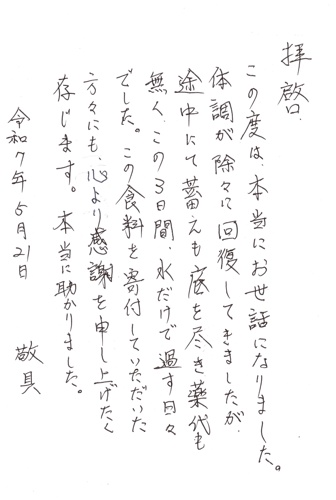 拝啓
この度は、本当にお世話になりました。
体調が除々に回復してきましたが、
途中にて蓄えも底を尽き薬代も
無く、この3日間、水だけで過す日々
でした。この食料を寄付していただいた
方々にも、心より感謝を申し上げたく
存じます。本当に助かりました。
敬具
令和7年5月21日